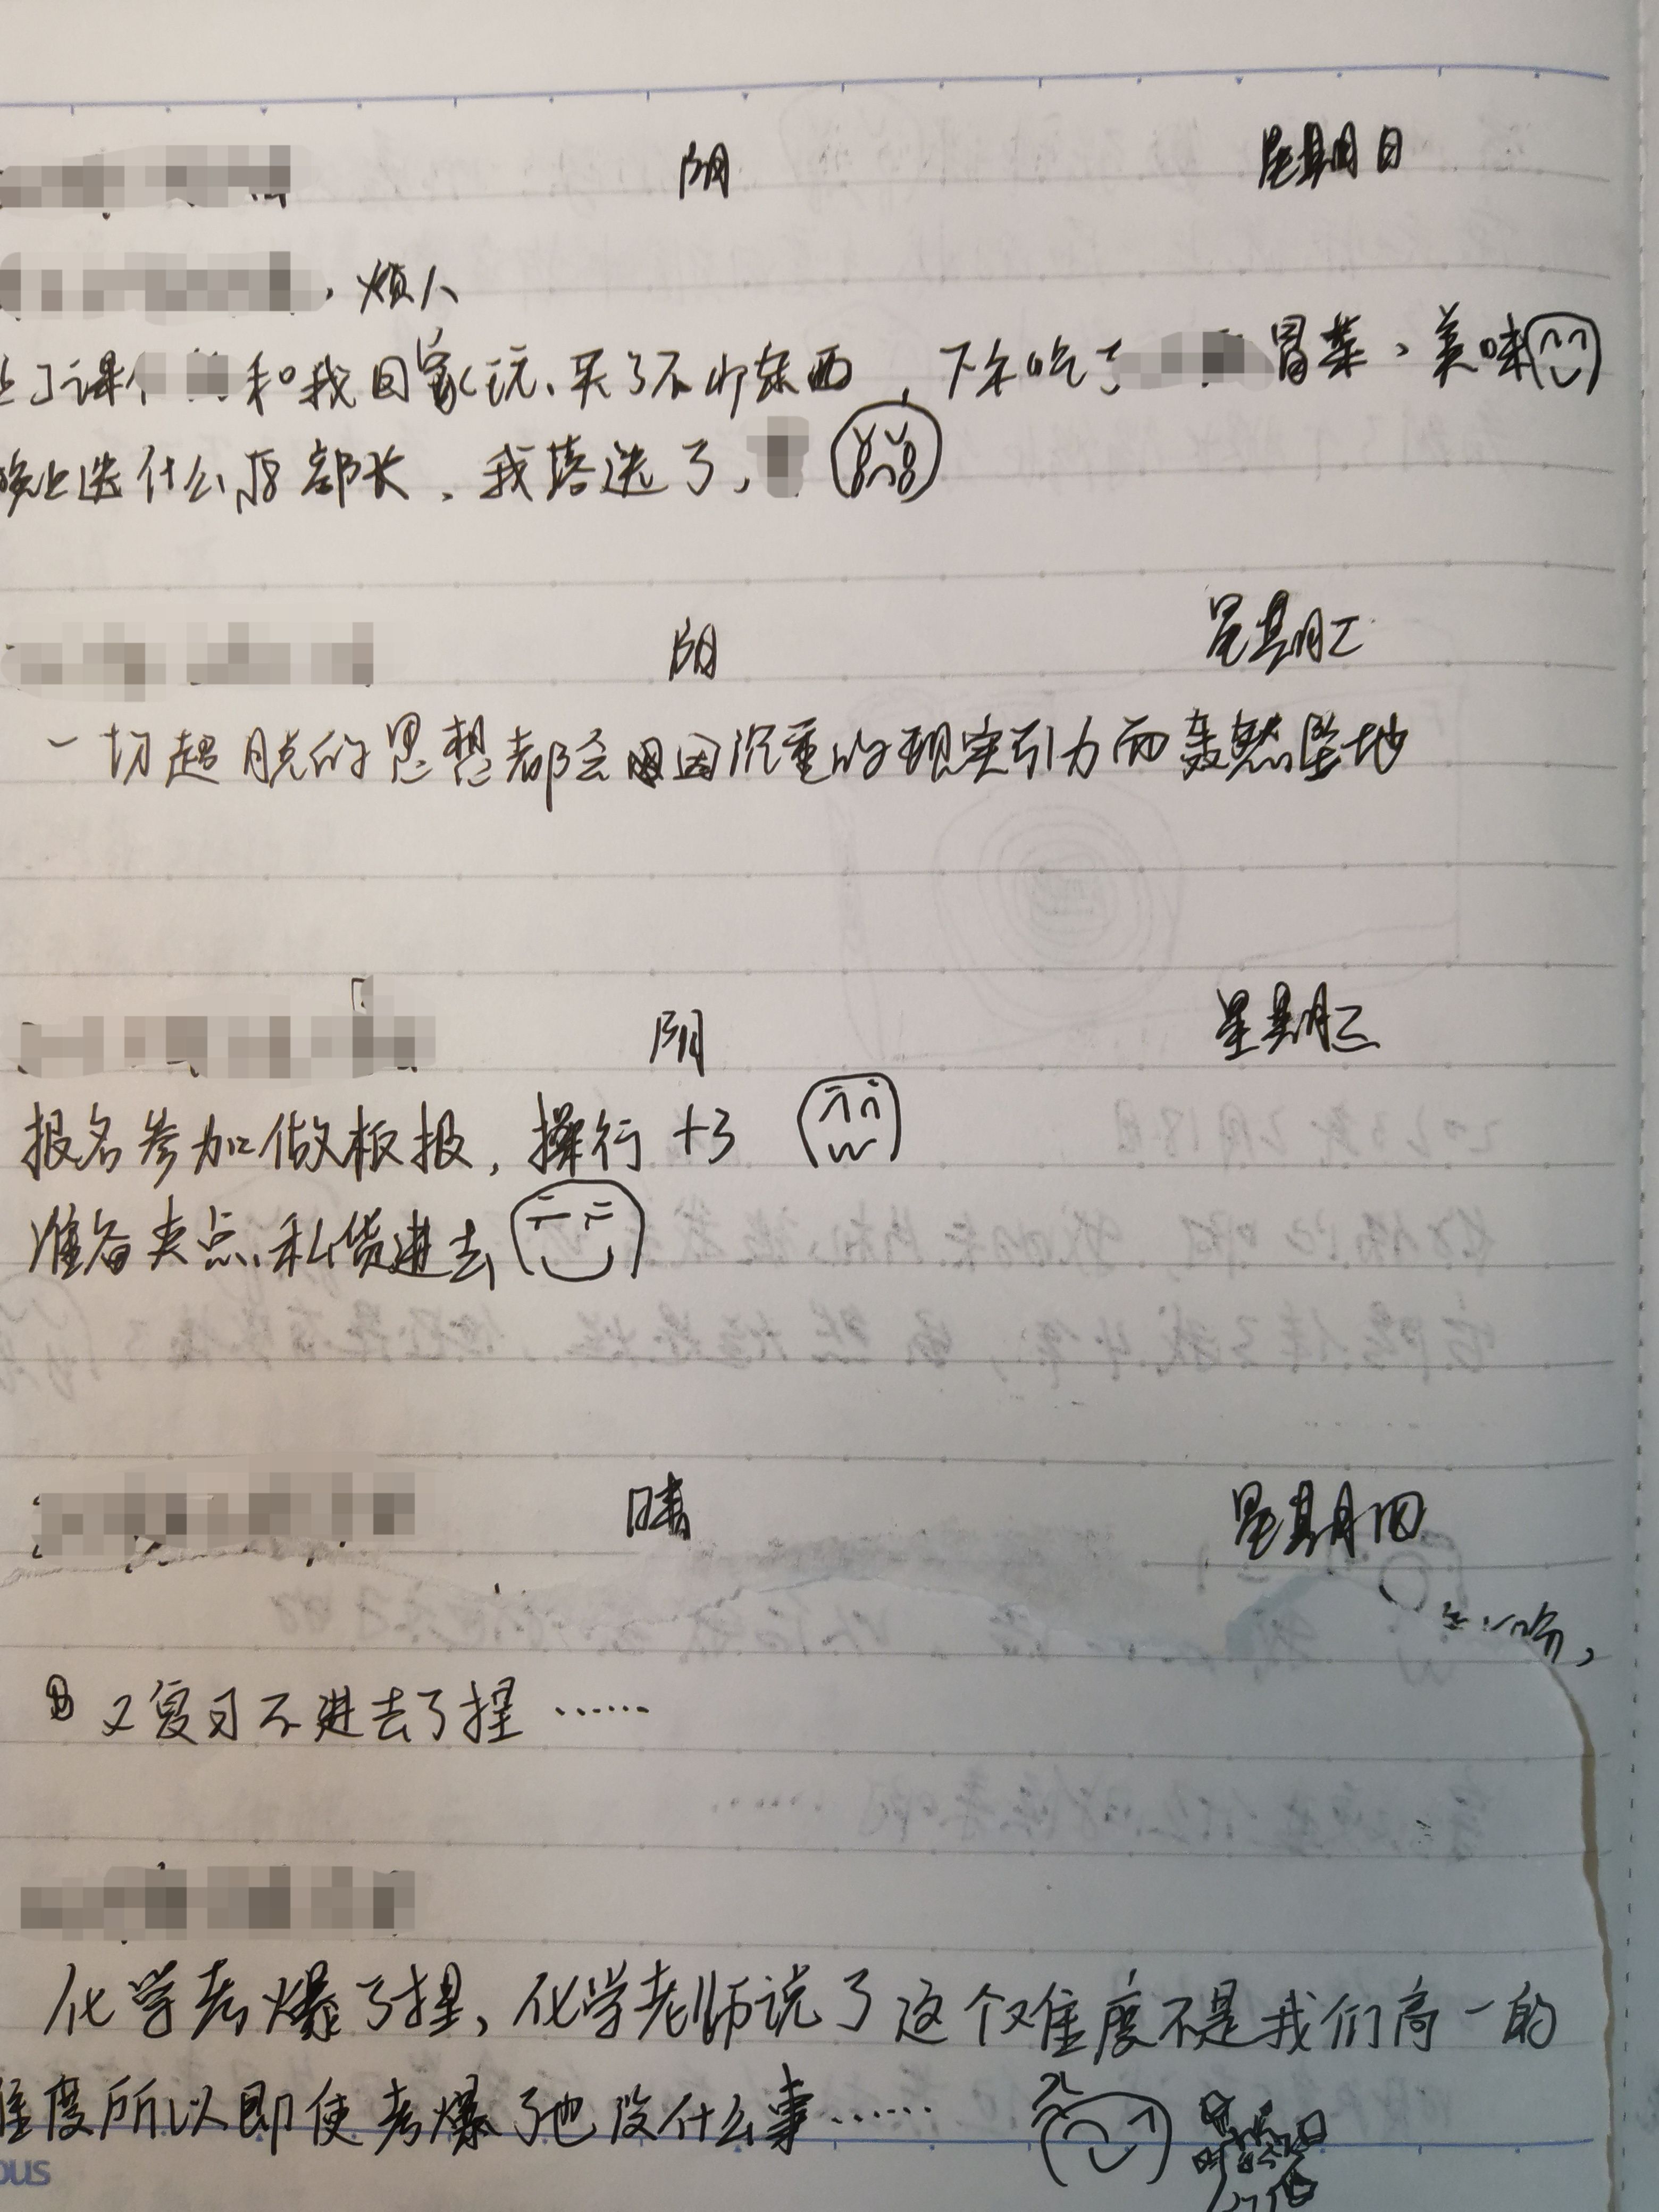 阴 星期日
，烦人
上了课 和我回家玩、买了不少东西，下午吃了 冒菜、美味
晚上选什么 部长，我落选了，
阴 星期二
一切超脱的思想都会因沉重的现实引力而轰然坠地
阴 星期三
报名参加做板报，操行+3
准备夹点私货进去
晴 星期四
又复习不进去了捏……
化学考爆了捏，化学老师说了这个难度不是我们高一的
难度所以即使考爆了也没什么事……